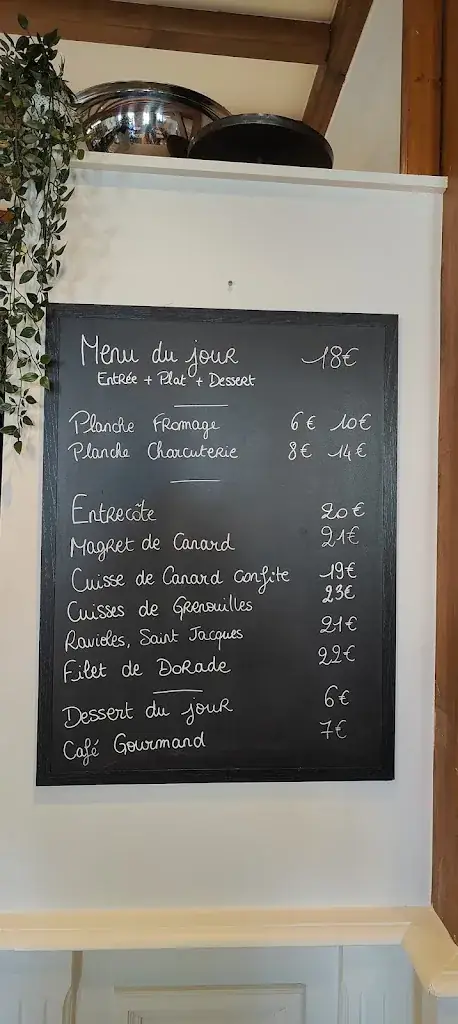 Menu du jour 18€
Entrée + Plat + Dessert
Planche Fromage 6€ 10€
Planche Charcuterie 8€ 14€
Entrecôte 20€
Magret de Canard 21€
Cuisse de Canard confite 19€
Cuisses de Grenouilles 23€
Ravioles, Saint Jacques 21€
Filet de Dorade 22€
Dessert du jour 6€
Café Gourmand 7€